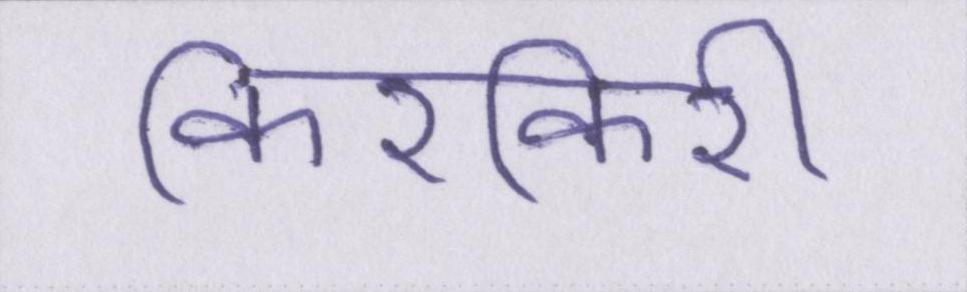 किरकिरी